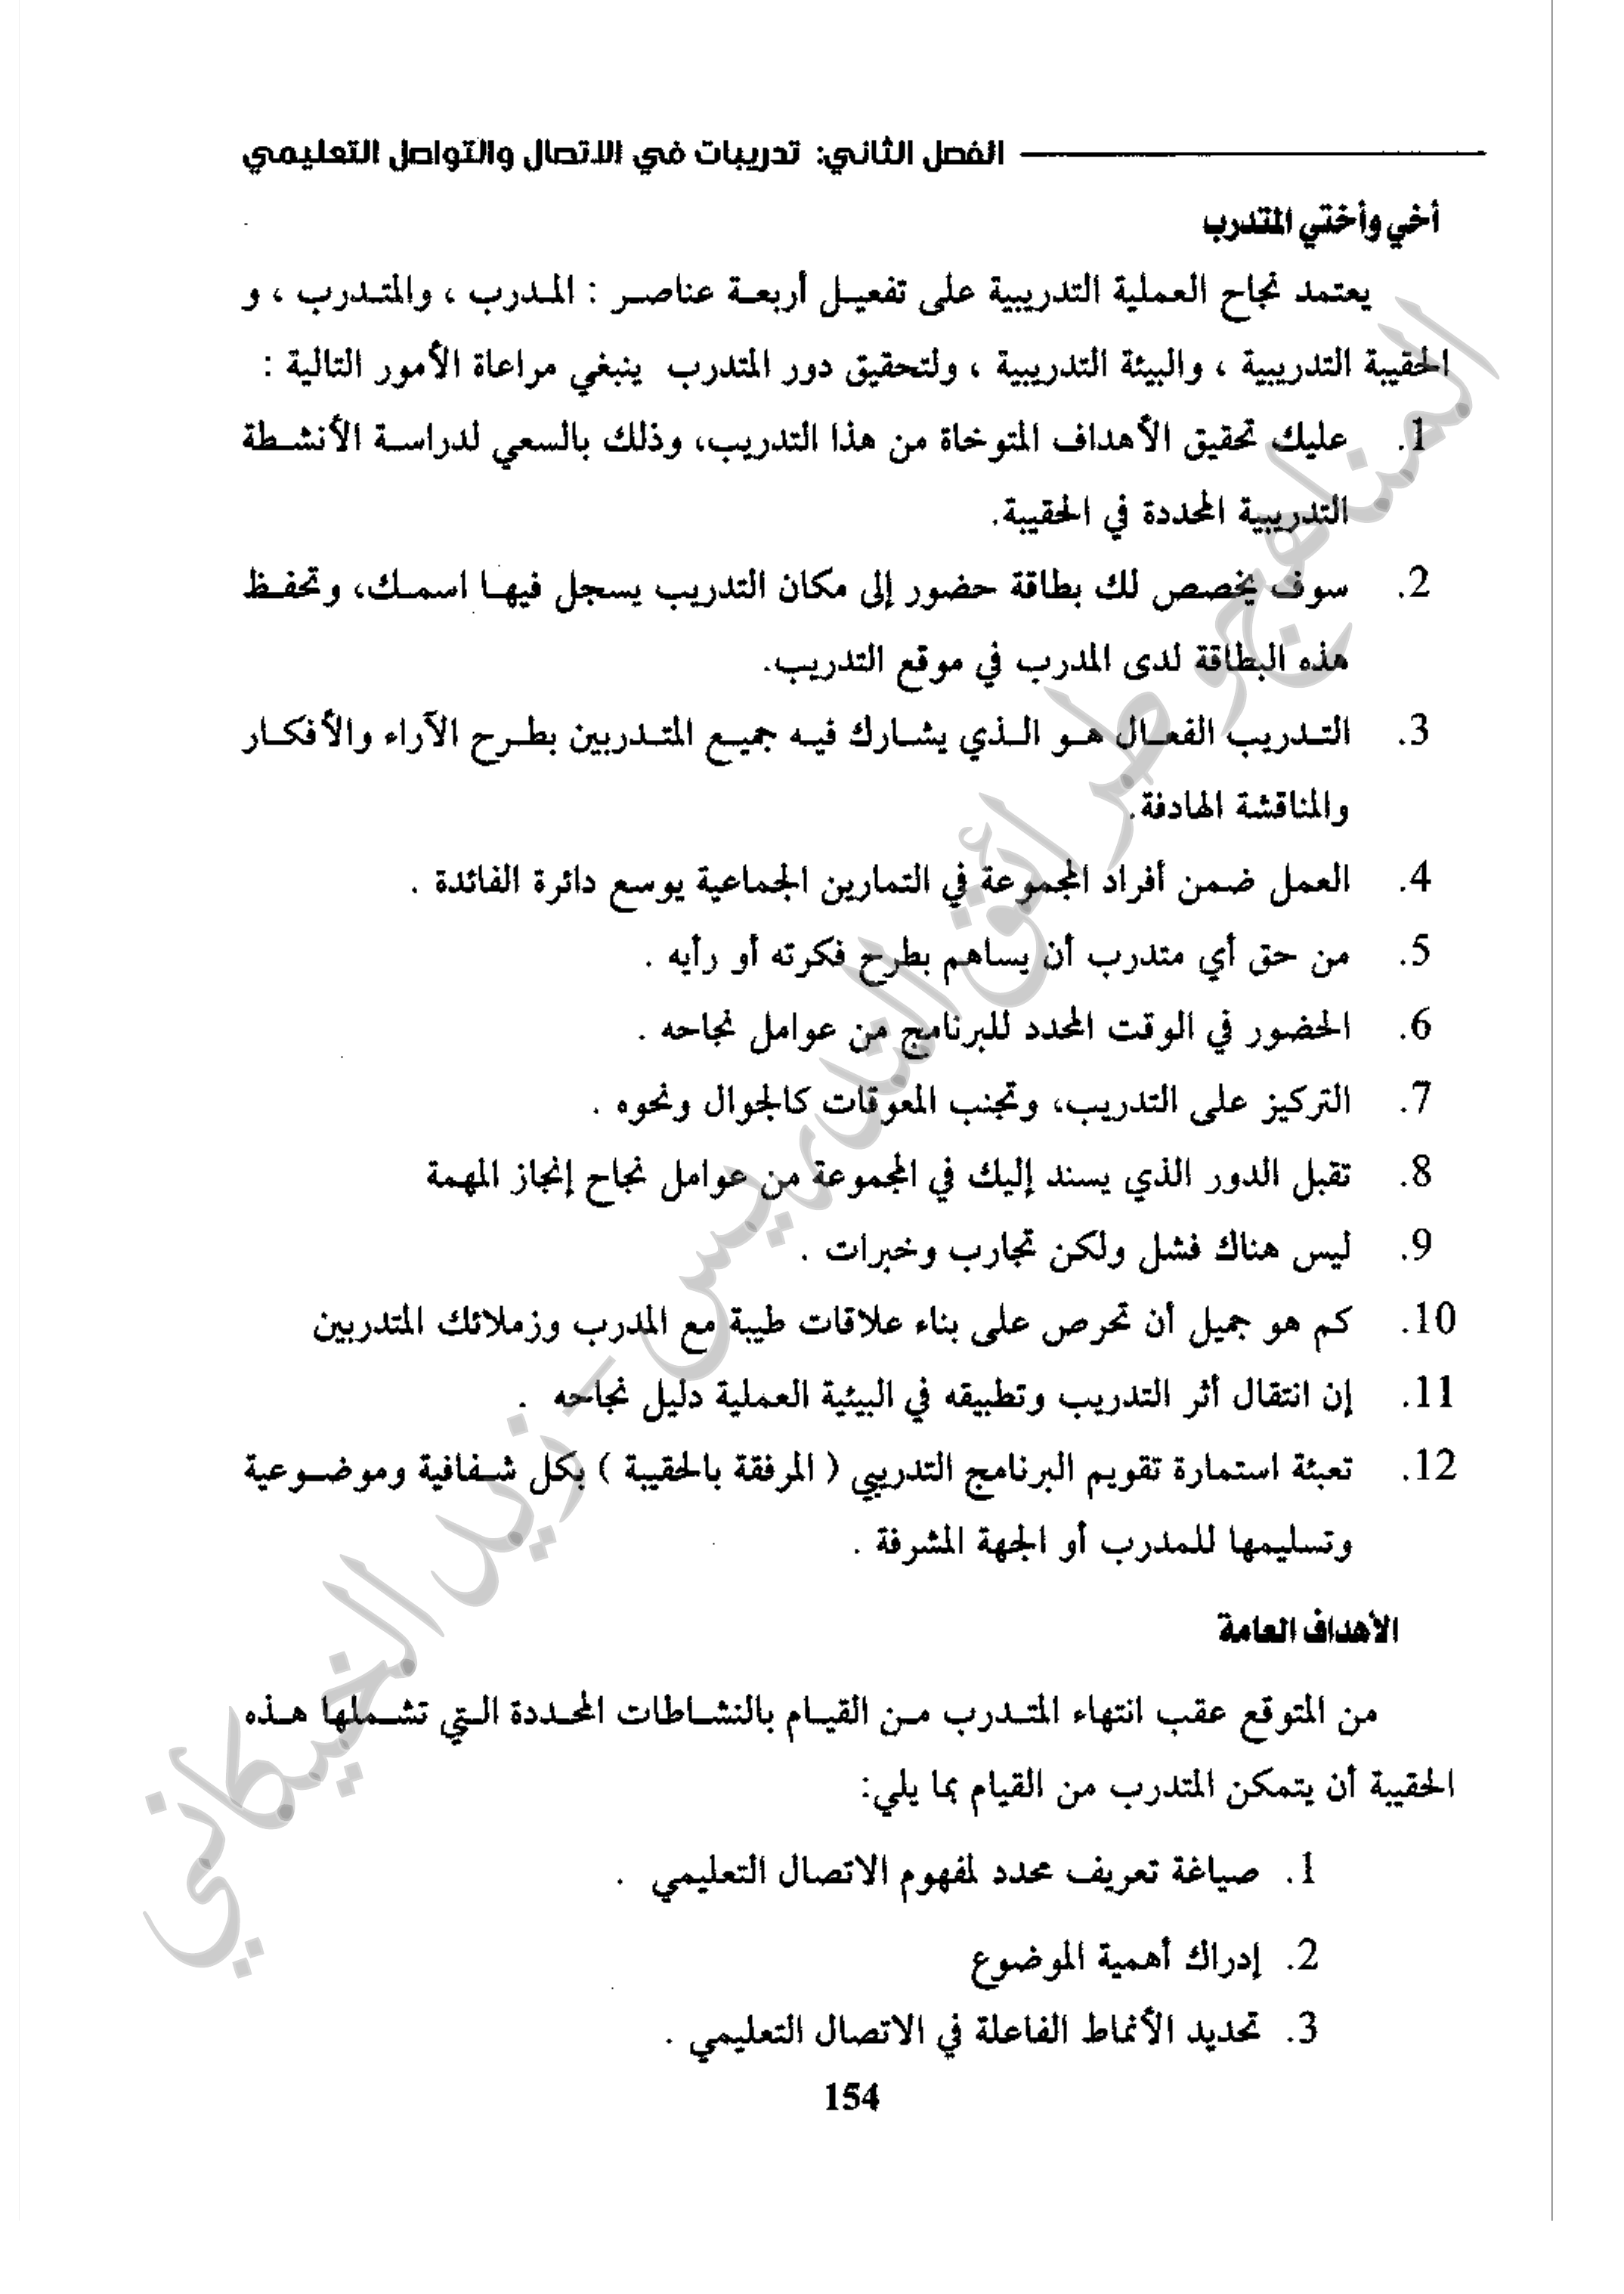 الفصل الثاني: تدريبات في الاتصال والتواصل التعليمي
أخي وأختي المتدرب
يعتمد نجاح العملية التدريبية على تفعيل أربعة عناصر : المدرب ، والمتدرب ، و
الحقيبة التدريبية ، والبيئة التدريبية ، ولتحقيق دور المتدرب ينبغي مراعاة الأمور التالية :
1. عليك تحقيق الأهداف المتوخاة من هذا التدريب، وذلك بالسعي لدراسة الأنشطة
التدريبية المحددة في الحقيبة.
2. سوف يخصص لك بطاقة حضور إلى مكان التدريب يسجل فيها اسمك، وتحفظ
هذه البطاقة لدى المدرب في موقع التدريب.
3. التدريب الفعال هو الذي يشارك فيه جميع المتدربين بطرح الآراء والأفكار
والمناقشة الهادفة.
4. العمل ضمن أفراد المجموعة في التمارين الجماعية يوسع دائرة الفائدة .
5. من حق أي متدرب أن يساهم بطرح فكرته أو رأيه .
6. الحضور في الوقت المحدد للبرنامج من عوامل نجاحه .
7. التركيز على التدريب، وتجنب المعوقات كالجوال ونحوه .
8. تقبل الدور الذي يسند إليك في المجموعة من عوامل نجاح إنجاز المهمة
9. ليس هناك فشل ولكن تجارب وخبرات .
10. كم هو جميل أن تحرص على بناء علاقات طيبة مع المدرب وزملائك المتدربين
11. إن انتقال أثر التدريب وتطبيقه في البيئية العملية دليل نجاحه .
12. تعبئة استمارة تقويم البرنامج التدريبي ( المرفقة بالحقيبة ) بكل شفافية وموضوعية
وتسليمها للمدرب أو الجهة المشرفة .
الأهداف العامة
من المتوقع عقب انتهاء المتدرب من القيام بالنشاطات المحددة التي تشملها هذه
الحقيبة أن يتمكن المتدرب من القيام بما يلي:
1. صياغة تعريف محدد لمفهوم الاتصال التعليمي .
2. إدراك أهمية الموضوع
3. تحديد الأنماط الفاعلة في الاتصال التعليمي .
154
المناهج وطرائق التدريس - زيد الخيكاني